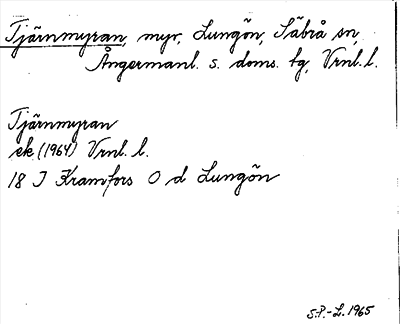 Tjärnmyran, myr, Lungön, Säbrå sn,
Ångermanl. s. doms. tg, Vrnl. l.
Tjärnmyran
ek (1964) Vrnl. l.
18 I Kramfors O d Lungön
S.P.-L. 1965